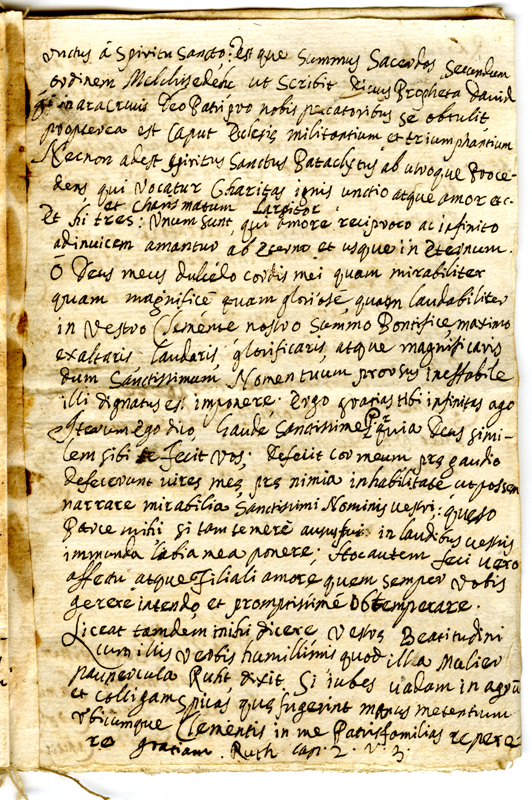 unctus á Spiritu Sancto: est que Summus Sacerdos secundum
ordinem Melchisedehc ut scribit Propheta david
in ara Crucis Deo Patri pro nobis peccatoribus se obtulit
propterea est Caput militantium et triumphantium
Necnon adest spiritus Sanctus Paraclytus ab utroque Proce-
dens qui vocatur Charitas ignis unctio atque amor etc-
et Charismatum Largitor
Et hi tres: Unum sunt, qui amore reciproco ac infinito
adinuicem amantur ab Æterno et usque in Æternum.
Ó Deus meus dulcedo cordis mei quam mirabiliter
quam magnificè quam gloriosè, quam laudabiliter
in Vestro Clemente nostro Summo Pontifice maximo
exaltaris laudaris, glorificaris, atque magnificaris
dum Sanctissimum Nomen tuum prorsus ineffabile
illi dignatus es imponere. Ergo gratias tibi infinitas ago
Iterum ego dico, Gaude Sanctissime Pr quia Deus simi-
lem sibi fecit vos; defecit cor meum præ gaudio
defecerunt vires meæ præ nimia inhabilitate ut possem
narrare mirabilia Sanctissimi Nominis vestri: quęso
Parce mihi si tam temerè in laudibus vestris
immunda labia mea ponere; Hoc autem feci vero
affectu atque Filiali amore quem semper vobis
gerere intendo et promptissimè Obtemperare.
Liceat tamdem mihi dicere Vestræ Beatitudini
cum illis verbis humillimis quod illa Mulier
paupercula Ruht dixit Si iubes vadam in agrū
et colligam spicas quæ fugerint manus metentium
Vbicumque Clementis in me Patrisfamilias repere
ro gratiam. Ruth cap. 2. v. 3.